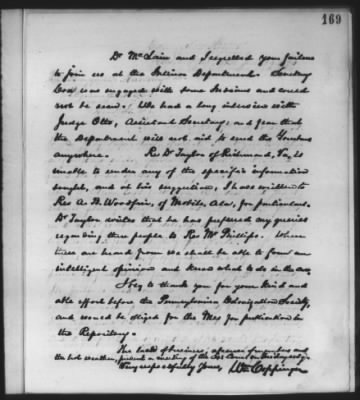 169
Dr McLain and I regretted your failure
to join us at the Interior Department. Secretary
Cox was engaged with some Indians and could
not be seen. We had a long interview with
Judge Otto, Assistant Secretary; and fear that
the Department will not aid to send the
anywhere. Rev Dr Taylor of Richmond, Va, is
unable to render any of the specific information
sought, and at his suggestion, I have written to
Rev A. B. Woodfin, of Mobile, Ala, for particulars.
Dr Taylor writes that he has referred my queries
regarding these people to Rev Mr Phillips. When
these are heard from we shall be able to form an
intelligent opinion and know what to do in the case.
I beg to thank you for your kind and
able effort before the Pennsylvania Colonization Society,
and would be obliged for the Mss for publication in
the Repository.
The lack of business, absence of members and
the hot weather, prevent a meeting of the Ex: Comt on Friday only.
Very respectfully Yours, Wm Coppinger